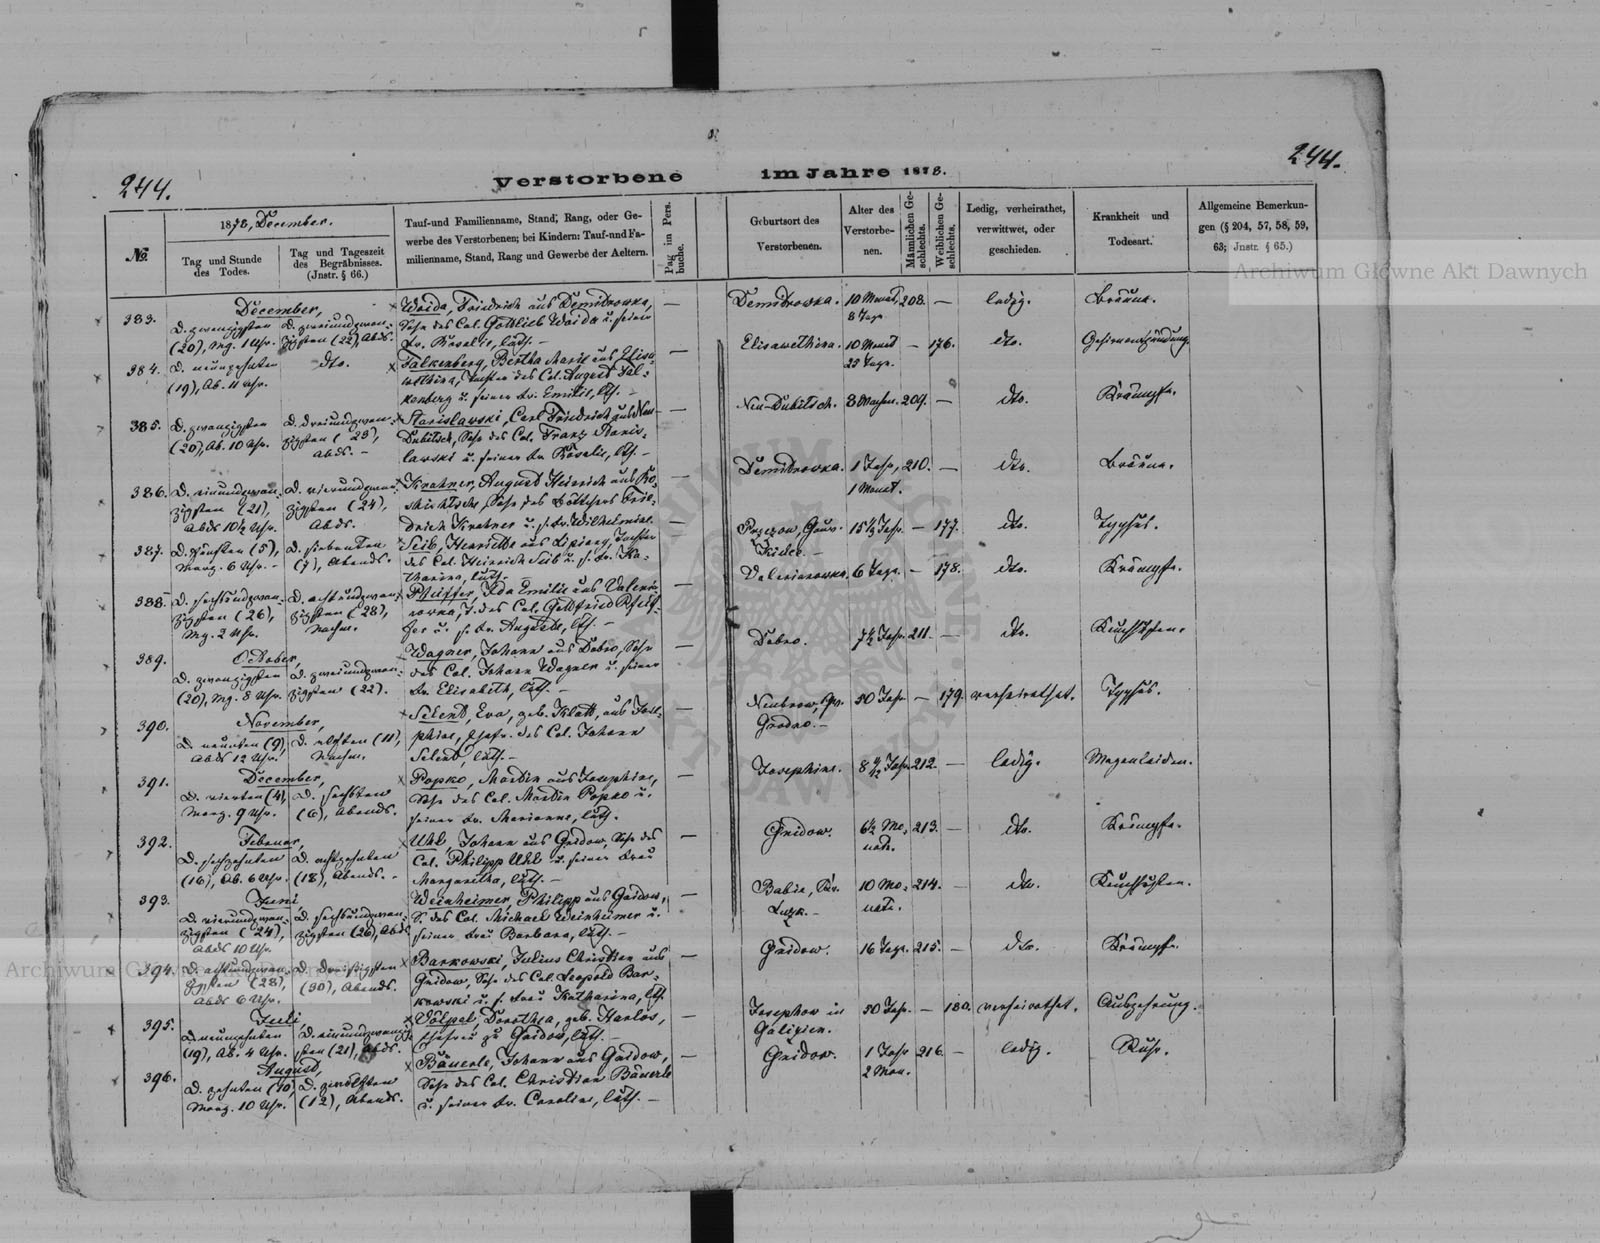 244.
244.
Verstorbene im Jahre 1878.
№
1878, December.
Tag und Stunde
des Todes.
Tag und Tageszeit
des Begräbnisses.
(Jnstr. § 66.)
Tauf-und Familienname, Stand, Rang, oder Ge-
werbe des Verstorbenen; bei Kindern: Tauf-und Fa-
milienname, Stand, Rang und Gewerbe der Aeltern.
Pag im Pers.
buche.
Geburtsort des
Verstorbenen.
Alter des
Verstorbe-
nen.
Männlichen Ge-
schlechts.
Weiblichen Ge-
schlechts.
Ledig, verheirathet,
verwittwet, oder
geschieden.
Krankheit und
Todesart.
Allgemeine Bemerkun-
gen (§ 204, 57, 58, 59,
63; Jnstr. § 65.)
383.
December,
D. zwanzigsten
(20), Mg. 1 Uhr.
D. zweiundzwan-
zigsten (22), Abds.
Woida, Friedrich aus Demidrowka,
Sohn des Col. Gottlieb Woida u. seiner
Fr. Rosalie, luth. –
Demidrowka. 10 Monat, 208. – ledig. Bräune.
8 Tage
384.
D. neunzehnten
(19), Ab. 11 Uhr.
dto.
Falkenberg, Bertha Marie aus Elisa-
wethina, Tochter des Col. August Fal-
kenberg u. seiner Fr. Emilie, lth. –
Elisawethina. 10 Monat – 176. dto. Gehirnentzündung.
23 Tage.
385.
D. zwanzigsten
(20), Ab. 10 Uhr.
D. dreiundzwan-
zigsten (23),
Abds. –
Stanislawski, Carl Friedrich aus Neu-
Dubitsch, Sohn des Col. Franz Stanis-
lawski u. seiner Fr. Rosalie, lth. –
Neu-Dubitsch. 8 Wochen. 209. – dto. Krämpfe.
386.
D. einundzwan-
zigsten (21),
Abds 10½ Uhr.
D. vierundzwan-
zigsten (24),
Abds.
Krahner, August Heinrich aus Ro-
Sohn des Böttchers Frie-
drich Krahner u. s. Fr. Wilhelmine.
Demidrowka. 1 Jahr, 210. – dto. Bräune.
1 Monat.
387.
D. fünften (5),
Morg. 6 Uhr. –
D. siebenten
(7), Abends.
Seib, Henriette aus Lipiany, Tochter
des Col. Heinrich Seib u. s. Fr. Ka-
tharina, luth. –
Gouv. 15½ Jahr – 177. dto. Typhus.
Kielce. –
388.
D. sechsundzwan-
zigsten (26),
Mg. 2 Uhr.
D. achtundzwan-
zigsten (28),
Nachm.
Pfeiffer, Ida Emilie aus Valeria-
nowka, T. des Col. Gottfried Pfeif-
fer u. s. Fr. Auguste, lth. –
Valerianowka, 6 Tage. – 178. dto. Krämpfe.
389.
October,
D. zwanzigsten
(20), Mg. 8 Uhr.
D. zweiundzwan-
zigsten (22).
Wagner, Johann aus Dobro, Sohn
des Col. Johann Wagner u. seiner
Fr. Elisabeth, luth. –
Dobro. 7½ Jahr. 211. – dto. Keuchhusten.
390.
November,
D. neunten (9),
Abds 12 Uhr.
D. elften (11),
Nachm.
Selent, Eva, geb. Klatt, aus Jose-
phine, Ehefr. des Col. Johann
Selent, luth. –
Niubrow, Gv. 50 Jahr – 179. verheirathet. Typhus.
Grodno. –
391.
December,
D. vierten (4),
Morg. 9 Uhr.
D. sechsten
(6), Abends.
Popko, Martin aus Josephine,
Sohn des Col. Martin Popko u.
seiner Fr. Marianne, luth.
Josephine. 8 4/12 Jahr 212. – ledig. Magenleiden.
392.
Februar,
D. sechzehnten
(16), Ab. 6 Uhr.
D. achtzehnten
(18), Abends. –
Uhl, Johann aus Gnidow, Sohn des
Col. Philipp Uhl u. seiner Frau
Margaretha, luth. –
Gnidow. 6½ Mo- 213. – dto. Krämpfe.
nate.
393.
Juni
D. vierundzwan-
zigsten (24),
Abds 10 Uhr.
D. sechsundzwan-
zigsten (26), Abds
Weinheimer, Philipp aus Gnidow,
S. des Col. Michael Weinheimer u.
seiner Frau Barbara, luth. –
Babie, Kr. 10 Mo- 214. – dto. Keuchhusten.
Luzk. – nate.
394.
D. achtundzwan-
zigsten (28),
Abds 6 Uhr.
D. dreißigsten
(30), Abends.
Barkowski, Julius Christian aus
Gnidow, Sohn des Col. Leopold Bar-
kowski u. s. Frau Katharina, lth.
Gnidow. 16 Tage. 215. – dto. Krämpfe.
395.
Juli,
D. neunzehnten
(19), Ab. 4 Uhr.
D. einundzwanzig-
sten (21), Abds.
Völpel, Dorothea, geb. Harlos,
Ehefrau zu Gnidow, luth. –
Josephow in 50 Jahr. – 180. verheirathet. Auszehrung.
Galizien.
396.
August,
D. zehnten (10),
Morg. 10 Uhr.
D. zwölften
(12), Abends.
Bäuerle, Johann aus Gnidow,
Sohn des Col. Christian Bäuerle
u. seiner Fr. Caroline, luth. –
Gnidow. 1 Jahr 216. – ledig. Ruhr.
2 Mon.
Archiwum Główne Akt Dawnych